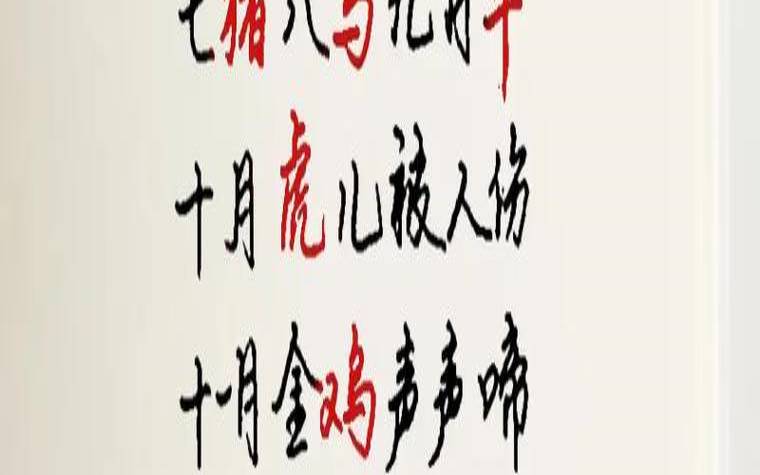 七猪八马九月羊
十月虎儿被人伤
十一月金鸡声声啼